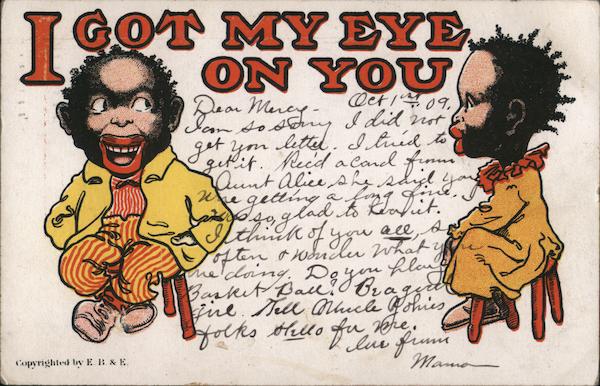 I GOT MY EYE
ON YOU
Oct 1st 09.
Dear Mercy-
I am so sorry I did not
get you letter. I tried to
get it. Rec'd a card from
Aunt Alice, she said you
were getting a long fine. I
was so, glad to know it.
I think of you all, so
often & wonder what you
are doing. Do you play
Basket Ball? Be a good
girl. Tell Uncle
folks Hello for me.
Love from
Mama
Copyrighted by E. B. & E.